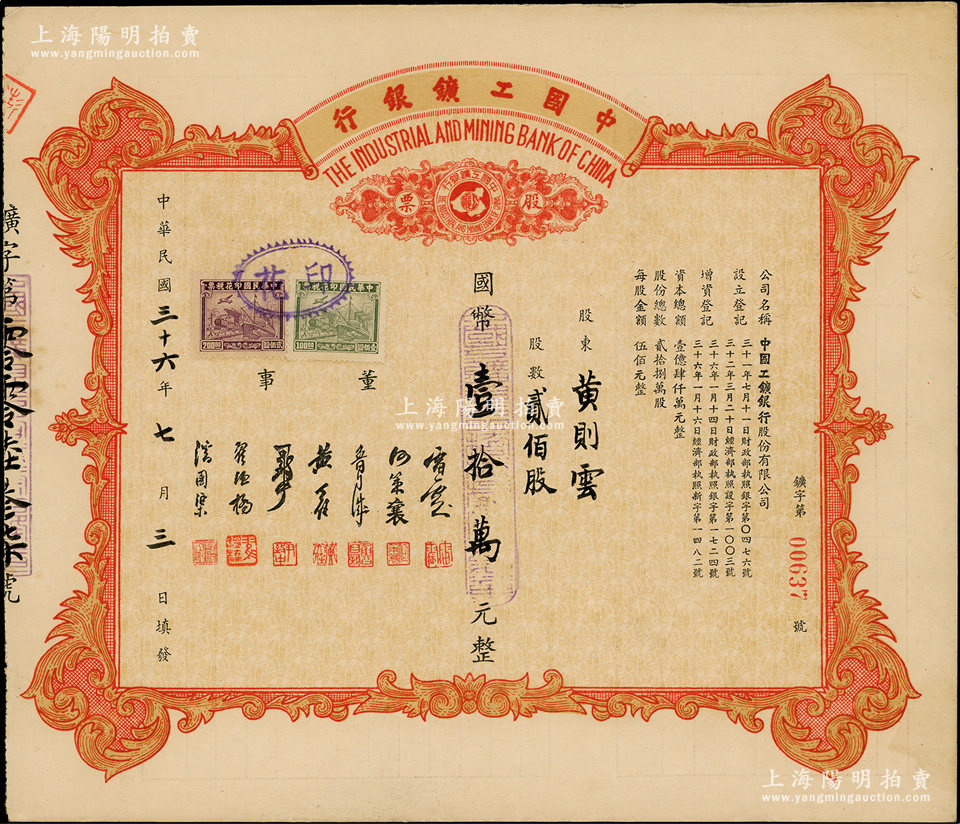 上海陽明拍賣
www.yangmingauction.com
中國工鑛銀行
THE INDUSTRIAL AND MINING BANK OF CHINA
股票
中國工鑛銀行
鑛字第 00637 號
公司名稱 中國工鑛銀行股份有限公司
設立登記 三十一年七月十一日財政部執照銀字第〇四七六號
三十二年三月二十日經濟部執照設字第一〇〇三號
增資登記 三十六年一月十四日財政部執照銀字第一七二四號
三十六年一月十六日經濟部執照新字第一四八二號
資本總額 壹億肆仟萬元整
股份總數 貳拾捌萬股
每股金額 伍佰元整
股東 黃則雲
股數 貳佰股
國幣 壹拾萬元整
印花
中華民國印花稅票
100.00
中華民國印花稅票
200.00
董事
潘國渠
中華民國三十六年七月三日填發
鑛字第零零陸叁柒號
上海陽明拍賣
www.yangmingauction.com
上海陽明拍賣
www.yangmingauction.com